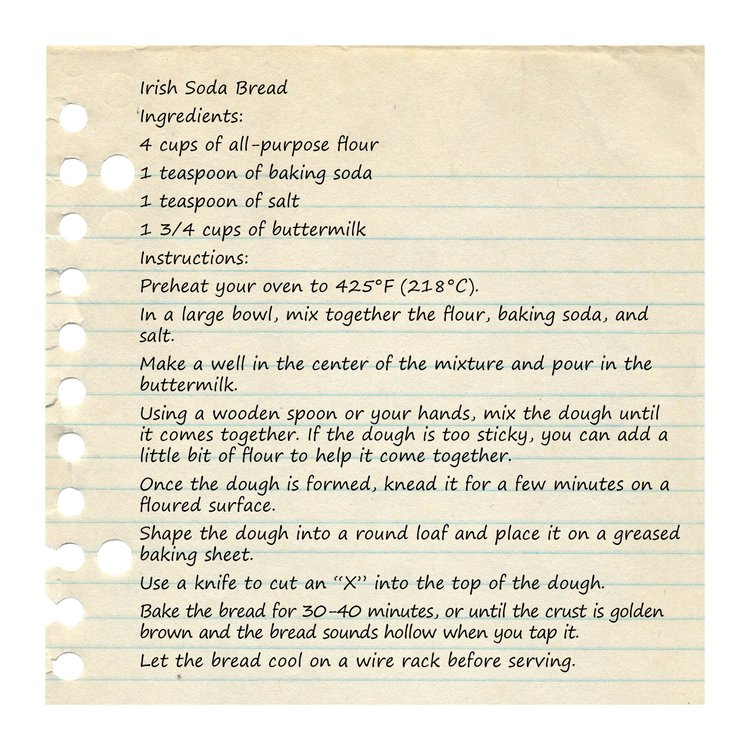 Irish Soda Bread
Ingredients:
4 cups of all-purpose flour
1 teaspoon of baking soda
1 teaspoon of salt
1 3/4 cups of buttermilk
Instructions:
Preheat your oven to 425°F (218°C).
In a large bowl, mix together the flour, baking soda, and
salt.
Make a well in the center of the mixture and pour in the
buttermilk.
Using a wooden spoon or your hands, mix the dough until
it comes together. If the dough is too sticky, you can add a
little bit of flour to help it come together.
Once the dough is formed, knead it for a few minutes on a
floured surface.
Shape the dough into a round loaf and place it on a greased
baking sheet.
Use a knife to cut an “X” into the top of the dough.
Bake the bread for 30-40 minutes, or until the crust is golden
brown and the bread sounds hollow when you tap it.
Let the bread cool on a wire rack before serving.